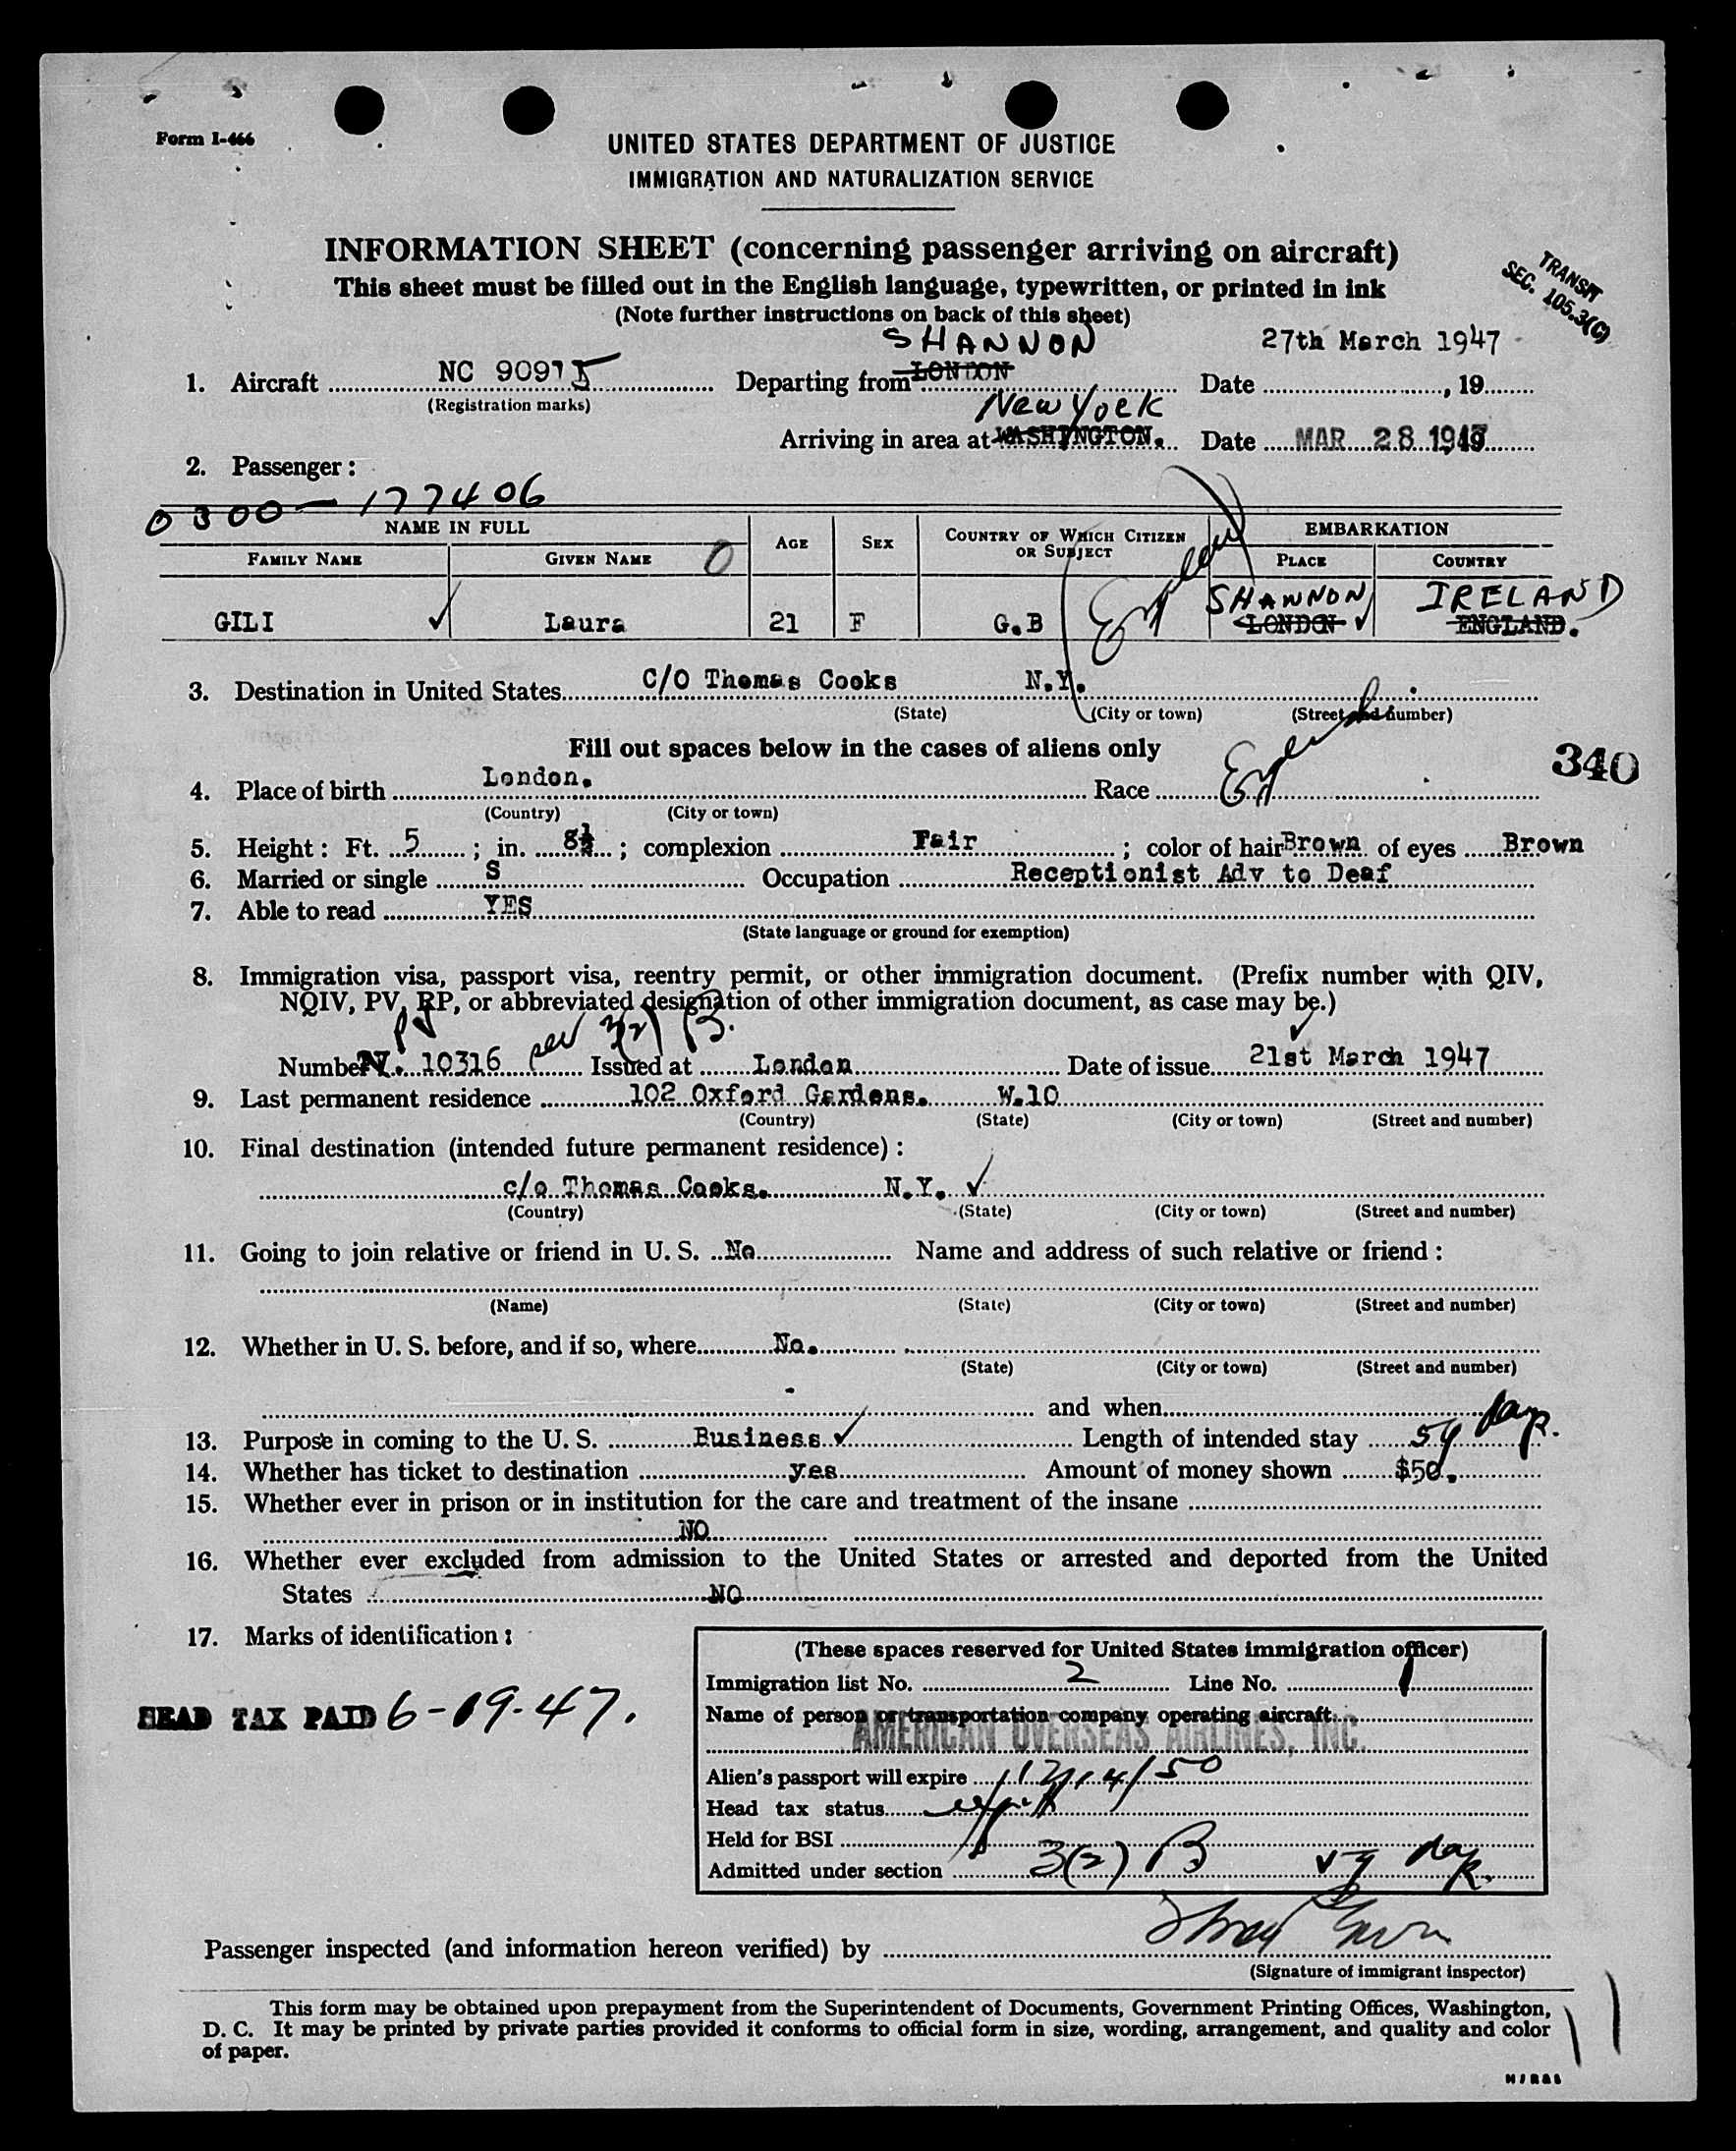 Form I-466
UNITED STATES DEPARTMENT OF JUSTICE
IMMIGRATION AND NATURALIZATION SERVICE
INFORMATION SHEET (concerning passenger arriving on aircraft)
This sheet must be filled out in the English language, typewritten, or printed in ink
(Note further instructions on back of this sheet)
TRANSIT
SEC. 105.3(C)
SHANNON 27th March 1947
1. Aircraft NC 90915 Departing from LONDON Date , 19
(Registration marks) New York
Arriving in area at WASHINGTON. Date MAR 28 1947
2. Passenger:
0300-177406
NAME IN FULL AGE SEX COUNTRY OF WHICH CITIZEN OR SUBJECT EMBARKATION
FAMILY NAME GIVEN NAME 0 PLACE COUNTRY
SHANNON IRELAND
GILI Laura 21 F G.B LONDON ENGLAND.
3. Destination in United States C/O Thomas Cooks N.Y.
(State) (City or town) (Street and number)
Fill out spaces below in the cases of aliens only
340
4. Place of birth London. Race
(Country) (City or town)
5. Height: Ft. 5 ; in. 8½ ; complexion Fair ; color of hair Brown of eyes Brown
6. Married or single S Occupation Receptionist Adv to Deaf
7. Able to read YES
(State language or ground for exemption)
8. Immigration visa, passport visa, reentry permit, or other immigration document. (Prefix number with QIV,
NQIV, PV, RP, or abbreviated designation of other immigration document, as case may be.)
PV per 3(2) B.
Number V. 10316 Issued at London Date of issue 21st March 1947
9. Last permanent residence 102 Oxford Gardens. W.10
(Country) (State) (City or town) (Street and number)
10. Final destination (intended future permanent residence):
c/o Thomas Cooks. N.Y.
(Country) (State) (City or town) (Street and number)
11. Going to join relative or friend in U. S. No Name and address of such relative or friend:
(Name) (State) (City or town) (Street and number)
12. Whether in U. S. before, and if so, where No.
(State) (City or town) (Street and number)
and when
13. Purpose in coming to the U. S. Business Length of intended stay days.
14. Whether has ticket to destination yes Amount of money shown $50.
15. Whether ever in prison or in institution for the care and treatment of the insane
NO
16. Whether ever excluded from admission to the United States or arrested and deported from the United
States NO
17. Marks of identification:
HEAD TAX PAID 6-19-47.
(These spaces reserved for United States immigration officer)
Immigration list No. 2 Line No. 1
Name of person or transportation company operating aircraft
AMERICAN OVERSEAS AIRLINES, INC.
Alien's passport will expire
Head tax status
Held for BSI
Admitted under section 3(2) B
Passenger inspected (and information hereon verified) by
(Signature of immigrant inspector)
This form may be obtained upon prepayment from the Superintendent of Documents, Government Printing Offices, Washington,
D. C. It may be printed by private parties provided it conforms to official form in size, wording, arrangement, and quality and color
of paper.